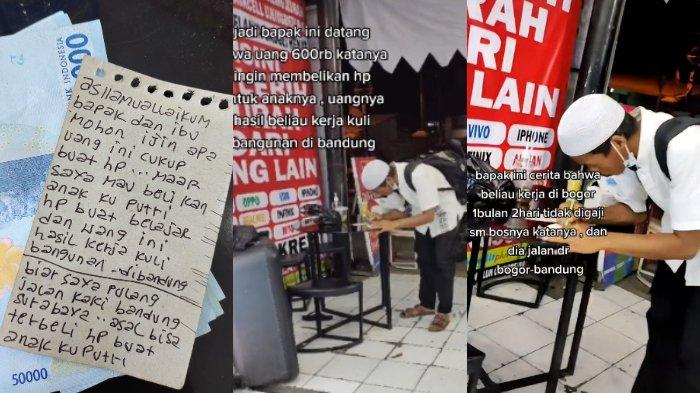 asllamuallaikum
bapak dan ibu
mohon ijin apa
uang ini cukup
buat hp... maaf
saya mau beli kan
anak ku putri
hp buat belajar
dan uang ini
hasil kerja kuli
bangunan - dibandung
biat saya pulang
jalan kaki bandung
surabaya.. asal bisa
terbeli hp buat
anak ku putri
BANK INDONESIA
50000
jadi bapak ini datang
wa uang 600rb katanya
ingin membelikan hp
ntuk anaknya , uangnya
hasil beliau kerja kuli
bangunan di bandung
DARI
NG LAIN
OPPO
VIVO
KRE
RAH
RI
LAIN
VIVO
IPHONE
bapak ini cerita bahwa
beliau kerja di bogor
1bulan 2hari tidak digaji
sm bosnya katanya , dan
dia jalan dr
bogor-bandung